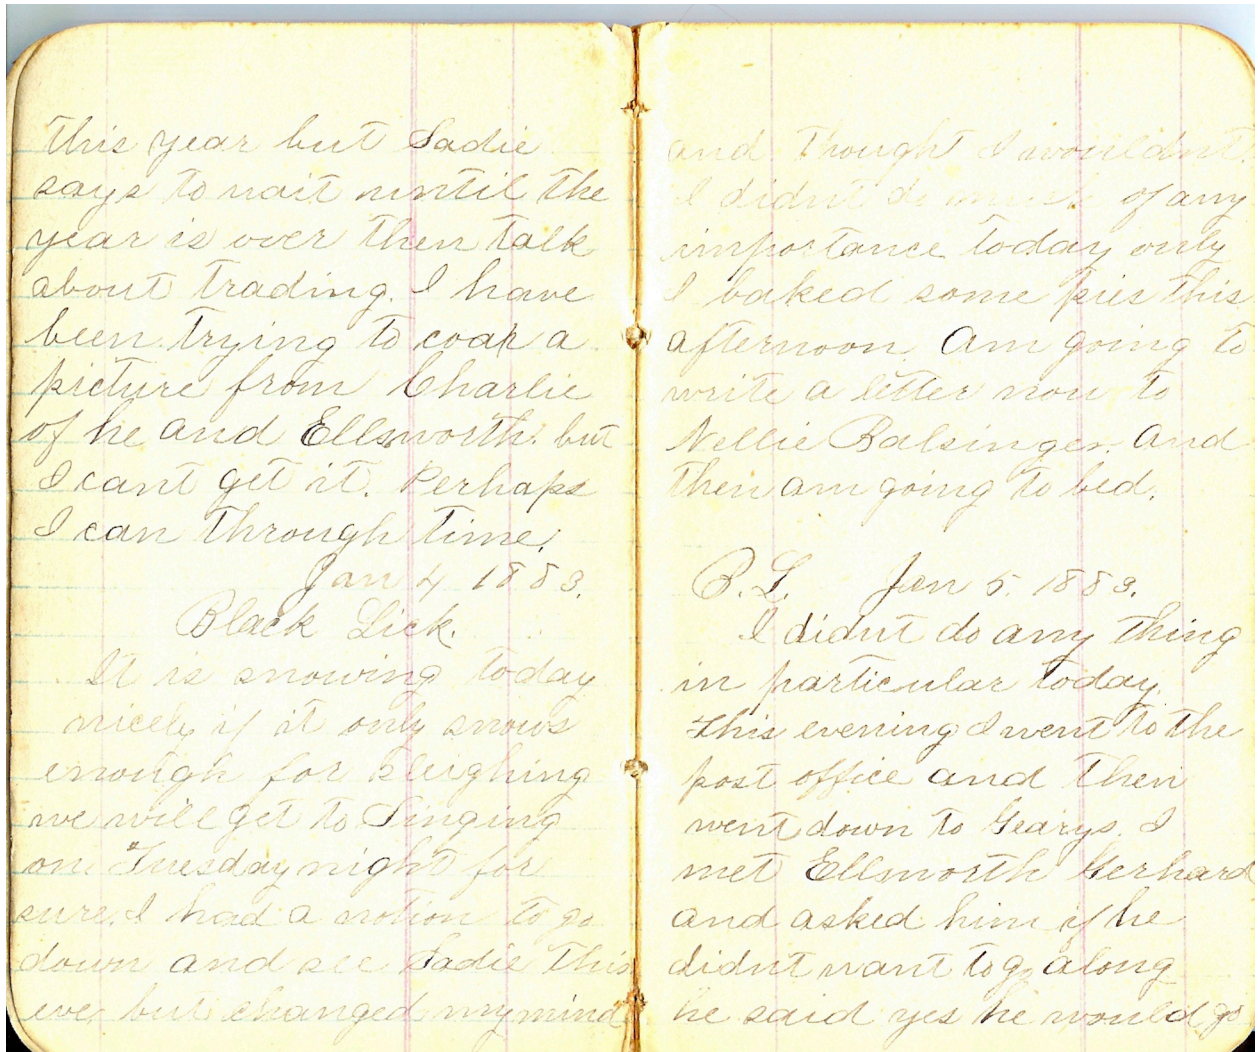 this year but Sadie
says to wait until the
year is over then talk
about trading. I have
been trying to coax a
picture from Charlie
of he and Ellsworth. but
I cant get it. Perhaps
I can through time.
Jan 4 1883.
Black Lick.
It is snowing today
nicely if it only snows
enough for sleighing
we will get to Singing
on Tuesday night for
sure. I had a notion to go
down and see Sadie this
eve but changed my mind
and thought I wouldnt.
I didnt do much of any
importance today only
I baked some pies this
afternoon Am going to
write a letter now to
Nellie Balsinger. and
then am going to bed.
B.L. Jan 5. 1883.
I didnt do any thing
in particular today.
This evening I went to the
post office and then
went down to Gearys. I
met Ellsworth Gerhard
and asked him if he
didnt want to go along
he said yes he would go